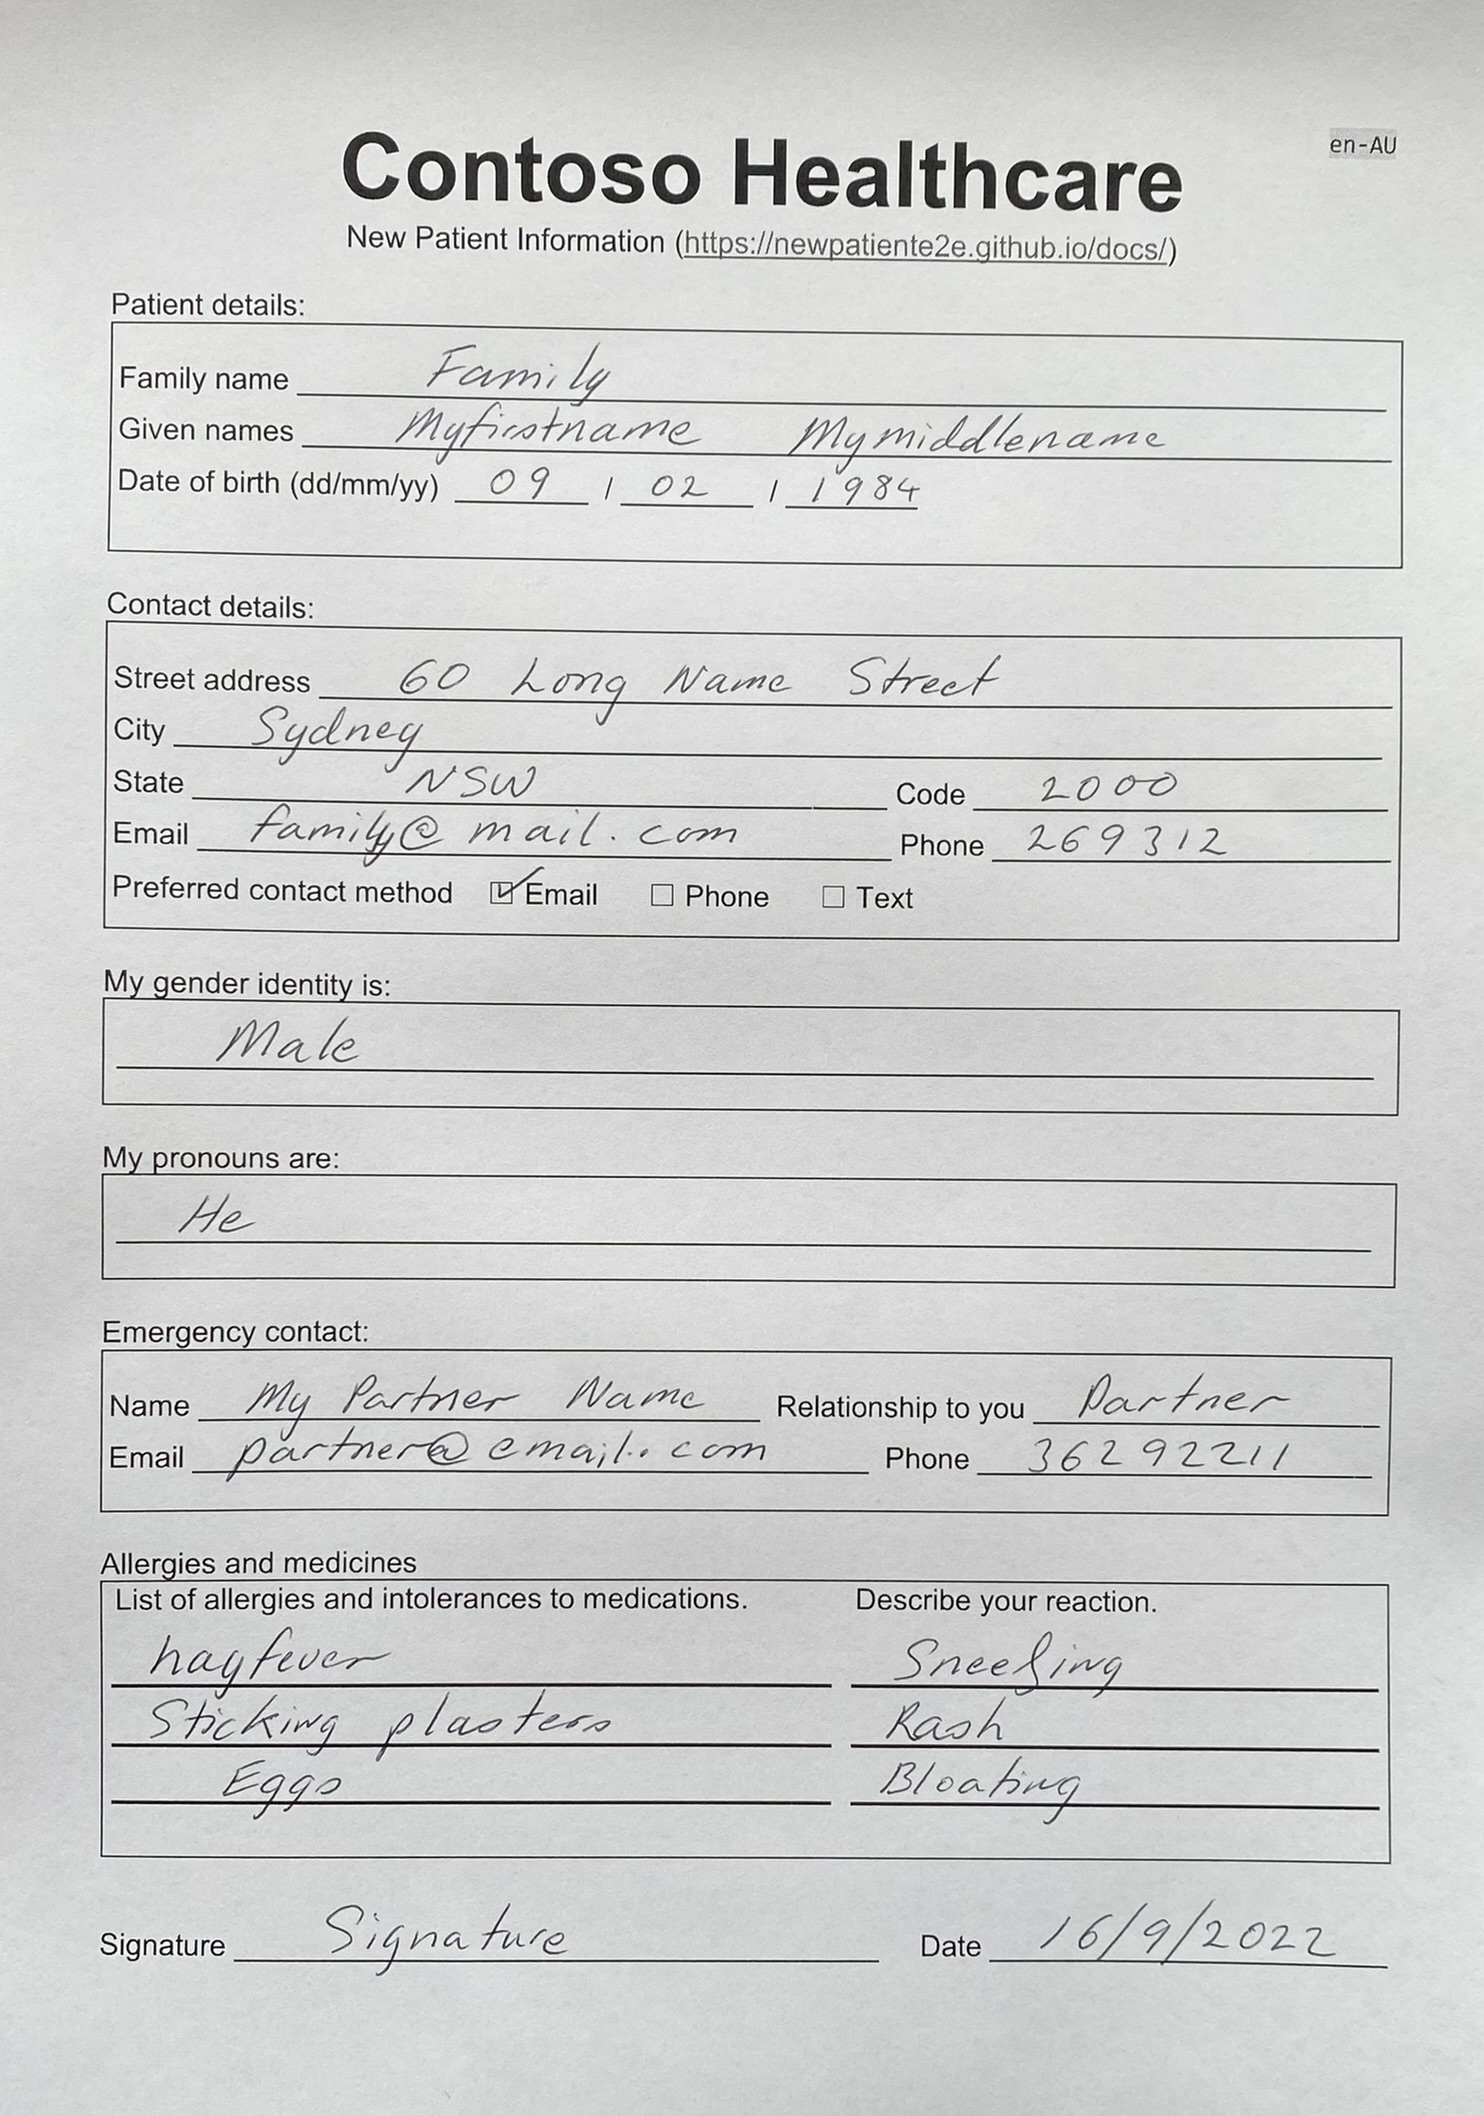 en-AU
Contoso Healthcare
New Patient Information (https://newpatiente2e.github.io/docs/)
Patient details:
Family name Family
Given names Myfirstname Mymiddlename
Date of birth (dd/mm/yy) 09 / 02 / 1984
Contact details:
Street address 60 Long Name Street
City Sydney
State NSW Code 2000
Email family@mail.com Phone 269312
Preferred contact method ☑ Email ☐ Phone ☐ Text
My gender identity is:
Male
My pronouns are:
He
Emergency contact:
Name My Partner Name Relationship to you Partner
Email partner@email.com Phone 36292211
Allergies and medicines
List of allergies and intolerances to medications. Describe your reaction.
hayfever Sneezing
Sticking plasters Rash
Eggs Bloating
Signature Signature Date 16/9/2022